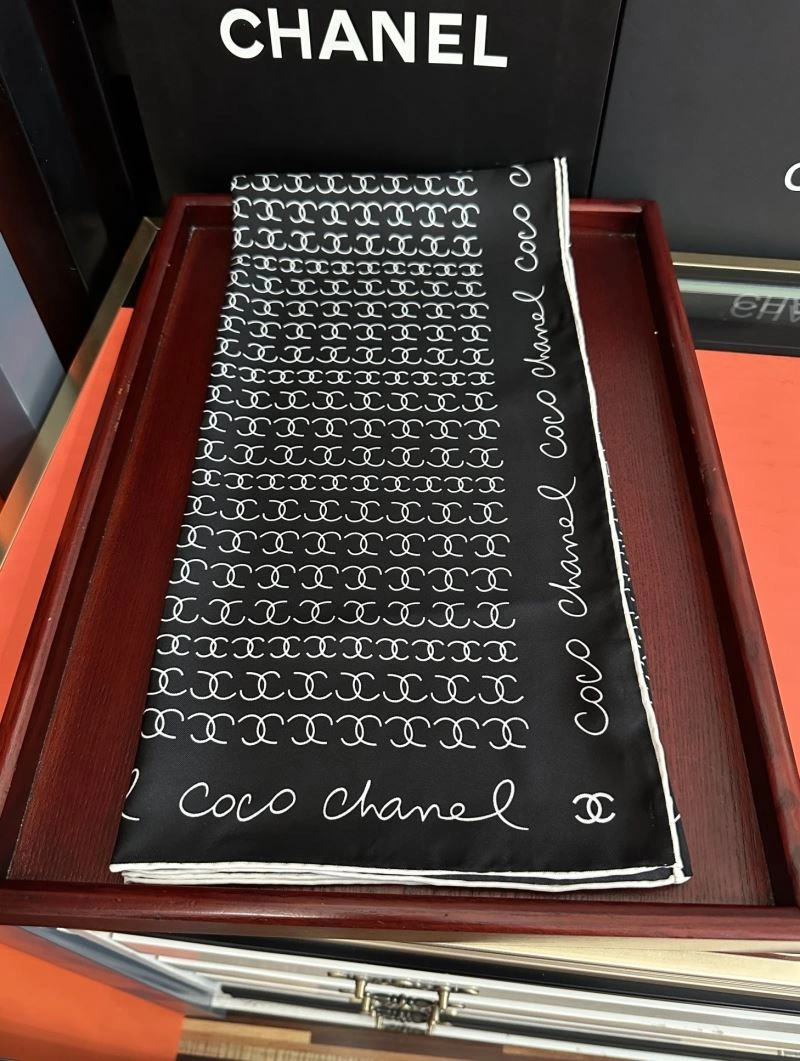 CHANEL
CHA
coco chanel coco chanel coco
coco chanel